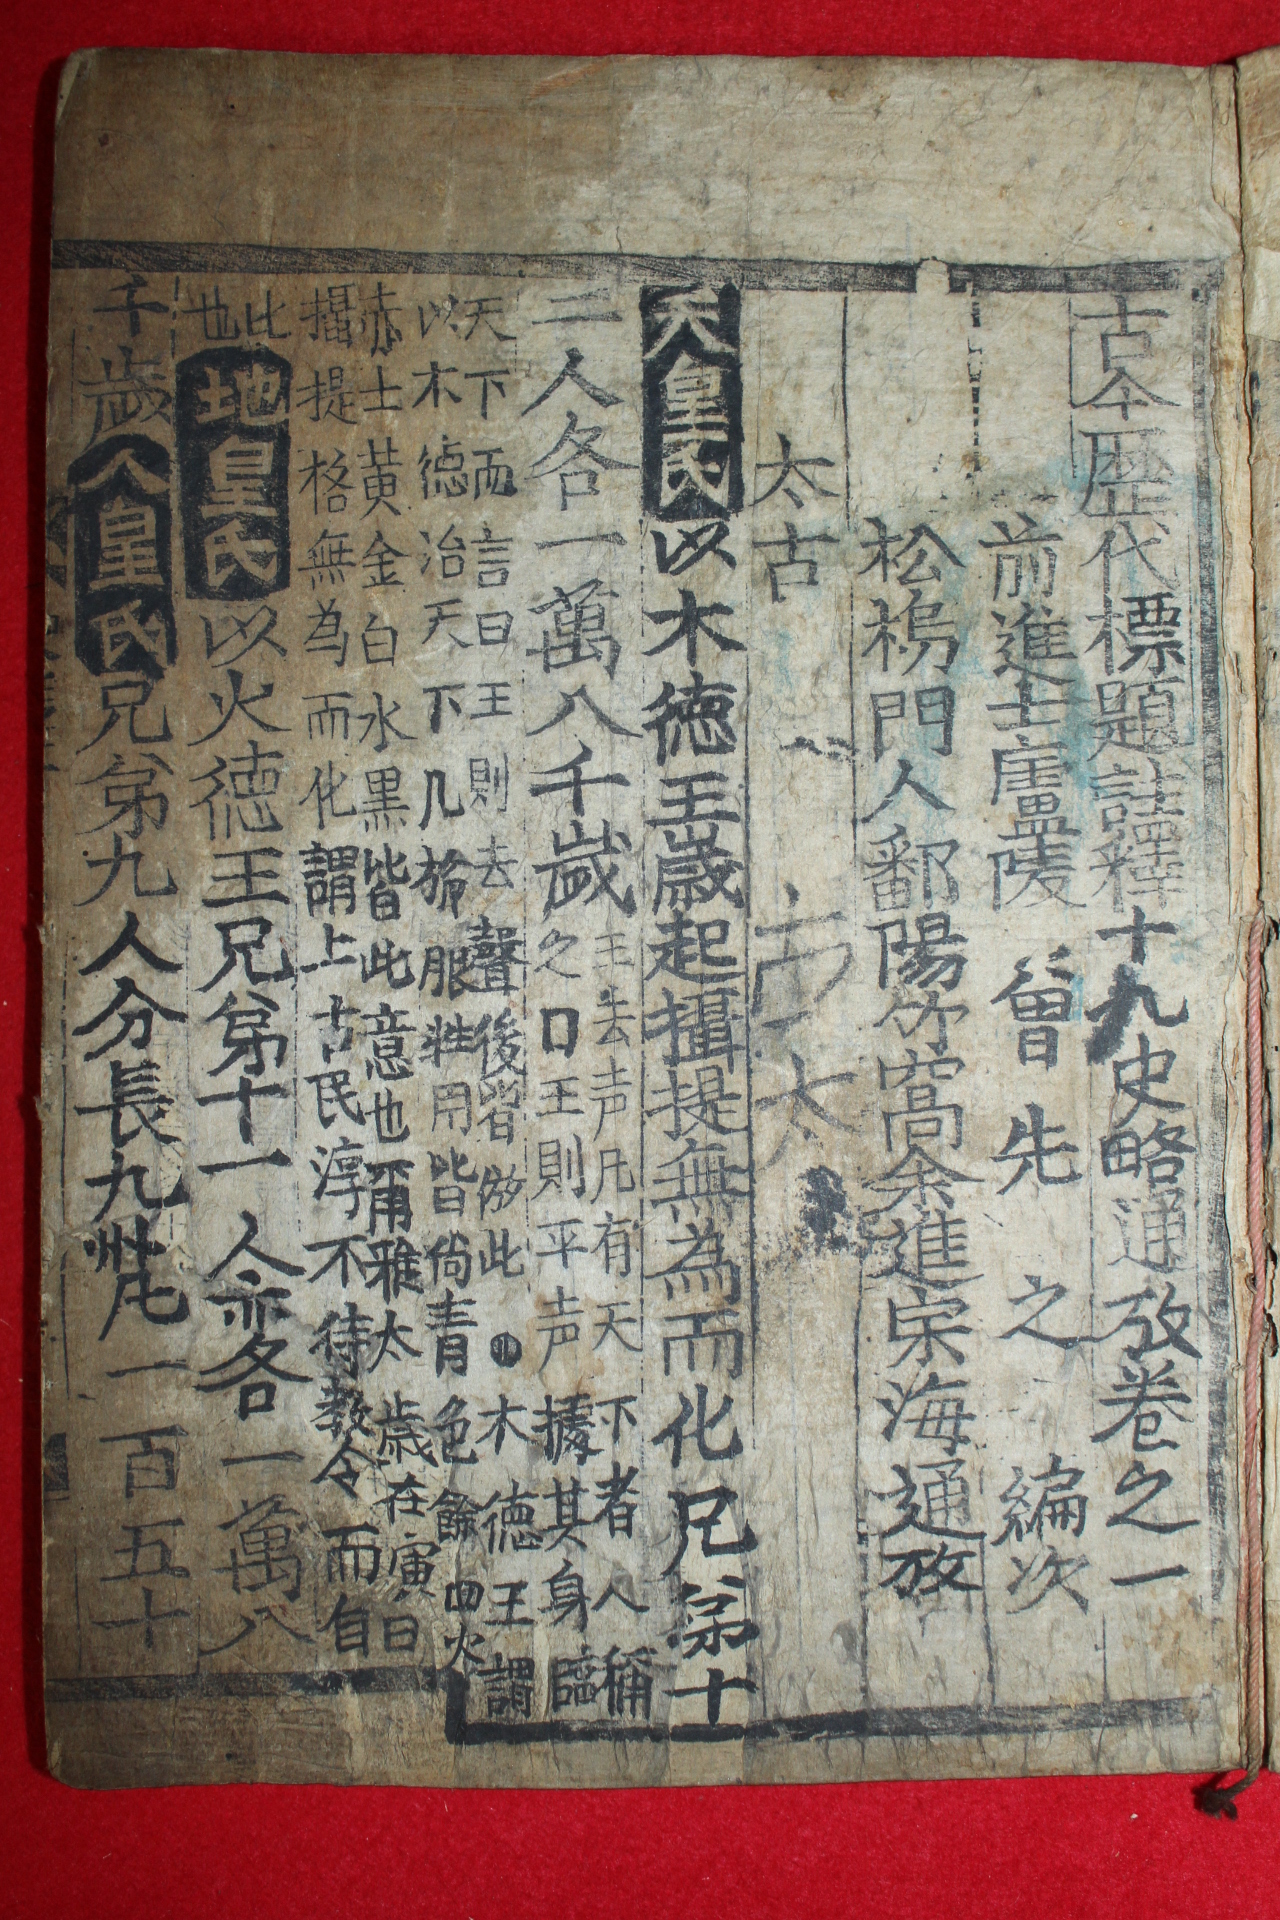 古今歷代標題註釋十九史略通攷卷之一
前進士廬陵 曾 先 之 編次
松塢門人鄱陽 余進宋海通攷
太古
太古
天皇氏以木德王歲起攝提無為而化兄弟十
二人各一萬八千歲
王去声凡有天下者人稱
之曰王則平声據其身臨
天下而言曰王則去聲後皆倣此 木德王謂
以木德治天下凡旂服牲用皆尙青色餘四火
赤土黃金白水黑皆此意也爾雅太歲在寅曰
攝提格無為而化謂上古民淳不待教令而自
此
也
地皇氏以火德王兄弟十一人亦各一萬八
千歲人皇氏兄弟九人分長九州凡一百五十